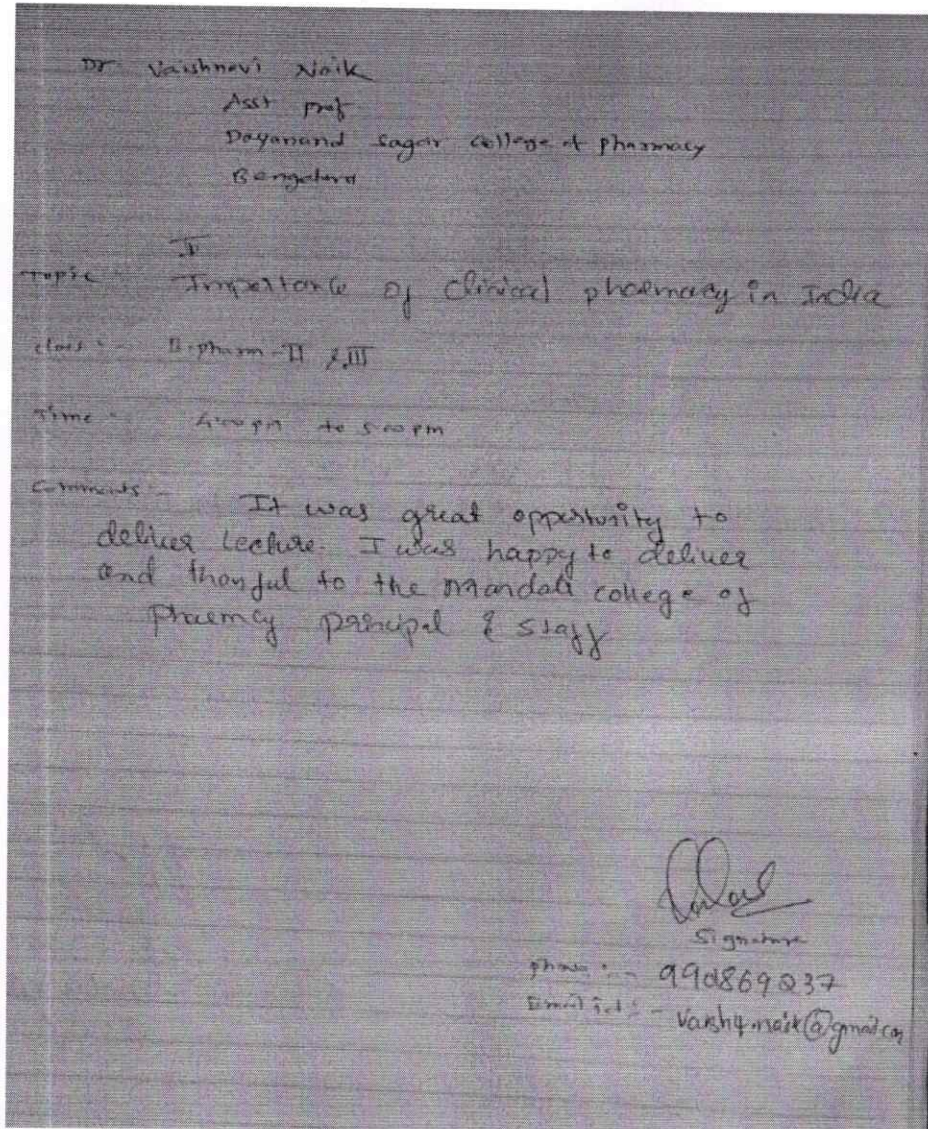 Dr Vaishnavi Naik
Asst prof
Dayanand sagar college of pharmacy
Bengaluru
Topic Importance of clinical pharmacy in India
class :- B-pharm-II & III
Time - 4:00 pm to 5:00 pm
Comments :- It was great oppertunity to
deliver lecture. I was happy to deliver
and thankful to the college of
pharmcy principal & staff
Signature
phone :-
Email id :-